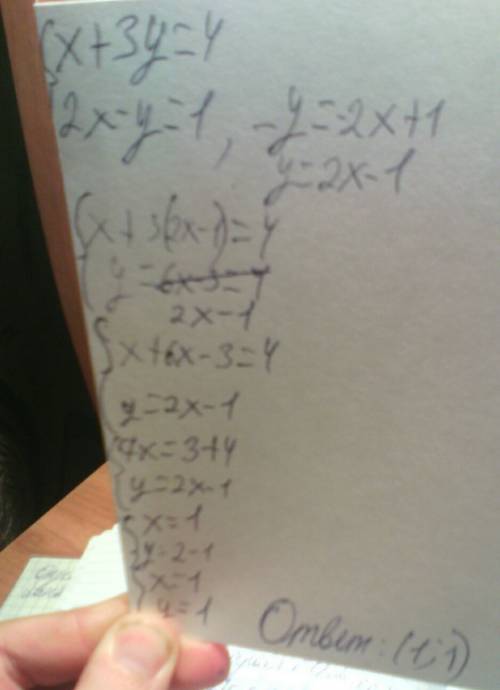 {x+3y=4
2x-y=1, -y=-2x+1
y=2x-1
{x+3(2x-1)=4
y=6x-3=4
2x-1
{x+6x-3=4
y=2x-1
{7x=3+4
y=2x-1
{x=1
y=2-1
{x=1
y=1
Ответ: (1;1)